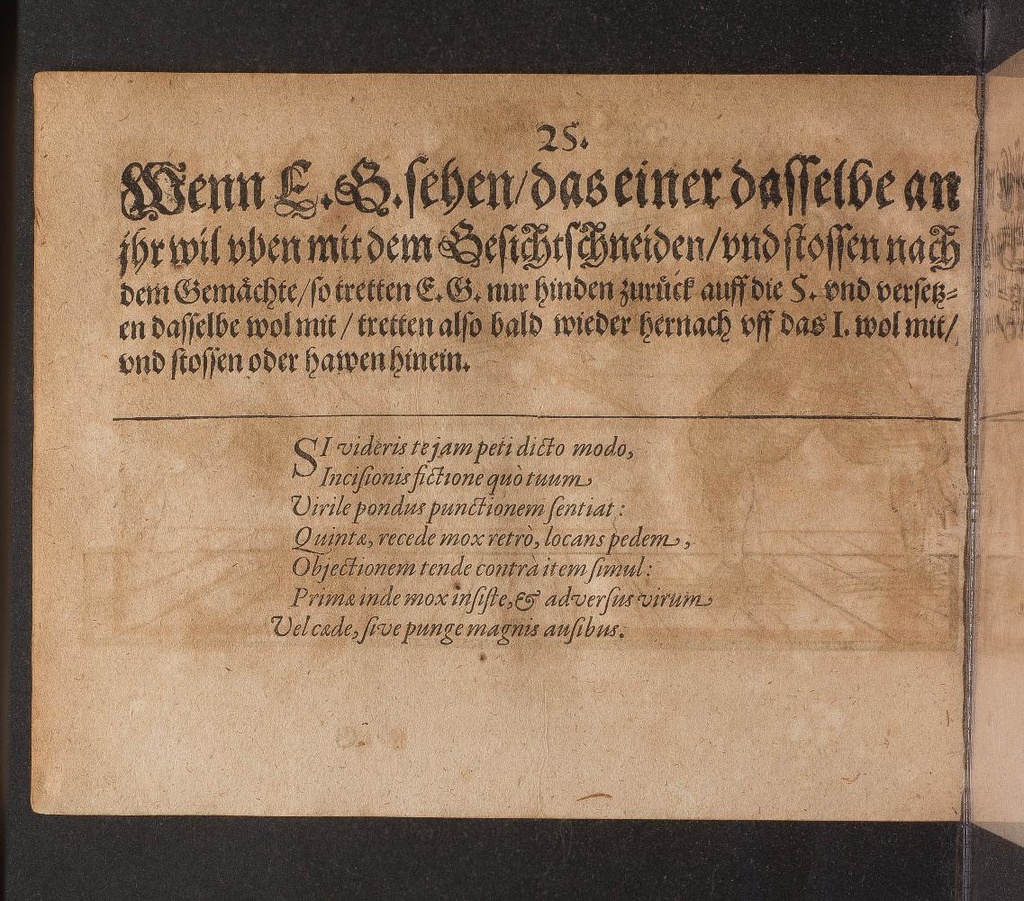 25.
Wenn E. G. sehen/ das einer dasselbe an
jhr wil vben mit dem Gesichtschneiden/ vnd stossen nach
dem Gemächte/ so tretten E. G. nur hinden zurück auff die 5. vnd versetz-
en dasselbe wol mit/ tretten also bald wieder hernach vff das I. wol mit/
vnd stossen oder hawen hinein.
SI videris te jam peti dicto modo,
Incisionis fictione quò tuum
Virile pondus punctionem sentiat:
Quintæ, recede mox retrò, locans pedem,
Objectionem tende contrà item simul:
Primæ inde mox insiste, & adversus virum
Vel cæde, sive punge magnis ausibus.